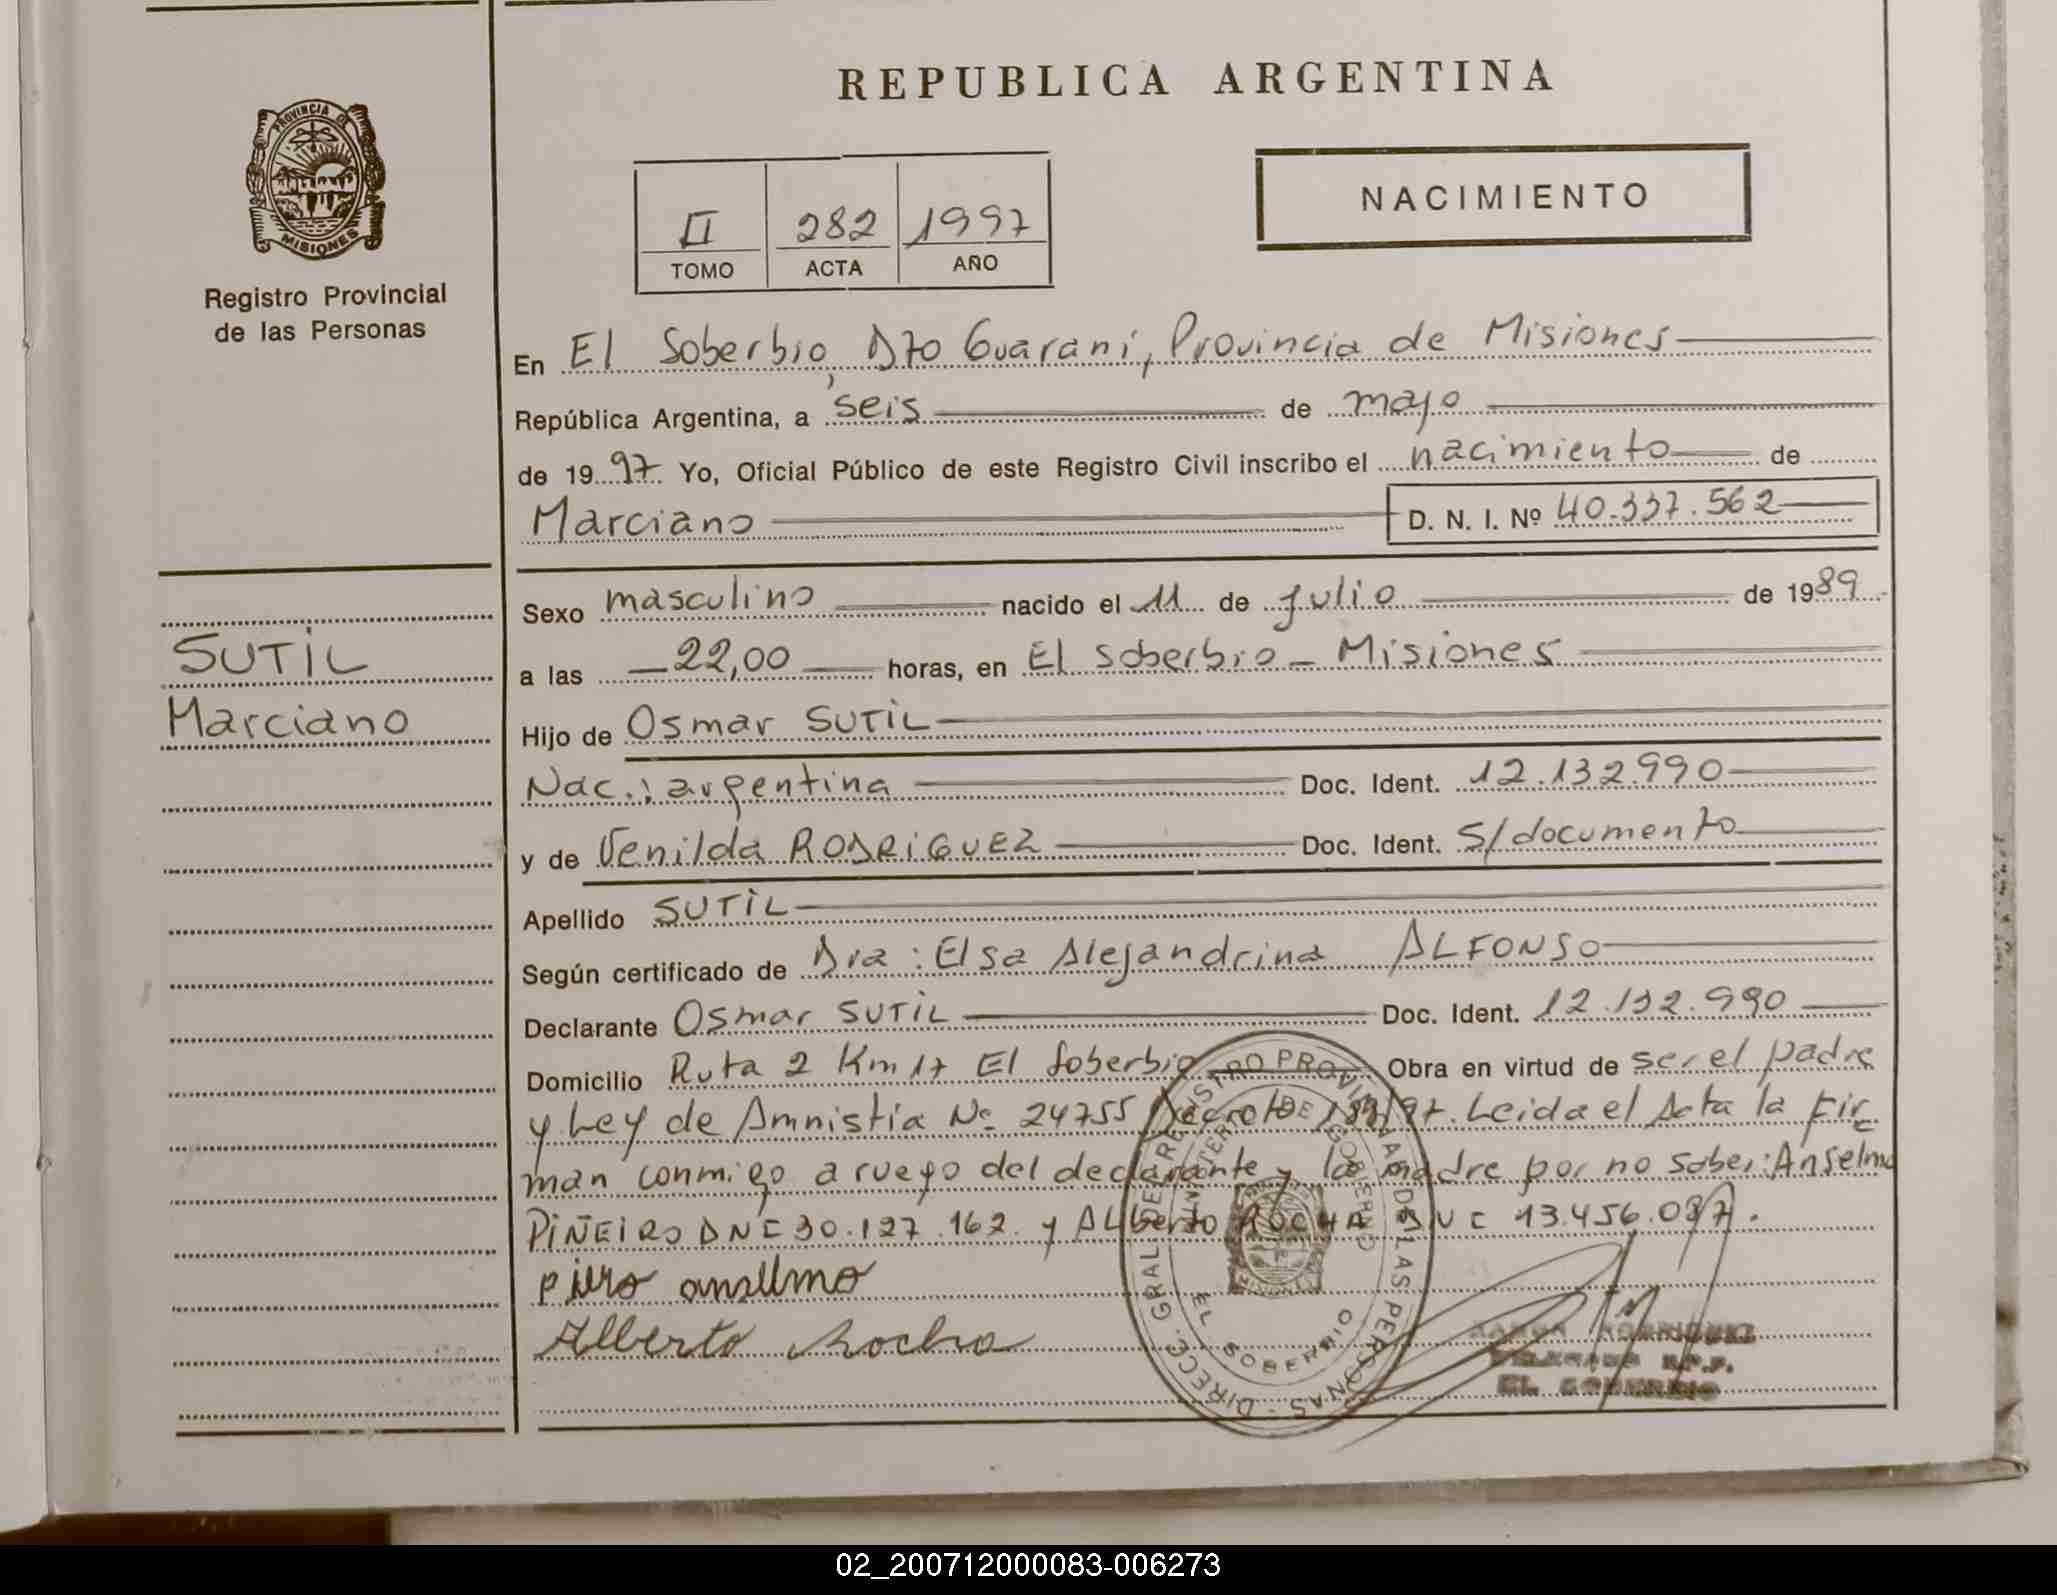 REPUBLICA ARGENTINA
PROVINCIA DE
MISIONES
Registro Provincial
de las Personas
II 282 1997
TOMO ACTA AÑO
NACIMIENTO
En El Soberbio, Dto Guaraní, Provincia de Misiones
República Argentina, a seis de mayo
de 1997 Yo, Oficial Público de este Registro Civil inscribo el nacimiento de
Marciano D. N. I. Nº 40.337.562
Sexo masculino nacido el 11 de julio de 1989
SUTIL
Marciano
a las 22,00 horas, en El Soberbio - Misiones
Hijo de Osmar SUTIL
Nac.: argentina Doc. Ident. 12.132.990
y de Venilda RODRIGUEZ Doc. Ident. S/documento
Apellido SUTIL
Según certificado de Dra: Elsa Alejandrina ALFONSO
Declarante Osmar SUTIL Doc. Ident. 12.132.990
Domicilio Ruta 2 Km 17 El Soberbio Obra en virtud de ser el padre
y Ley de Amnistia Nº 24755 Decreto /97. Leida el Acta la fir
man conmigo a ruego del declarante y la madre por no saber: Anselmo
PIÑEIRO DNI 30.127.162 y Alberto ROCHA DNI 13.456.097.
piero anselmo
Alberto Rocha
DIRECC. GRAL. DE REGISTRO PROVINCIAL DE LAS PERSONAS
MINISTERIO DE GOBIERNO
EL SOBERBIO
RODRIGUEZ
DELEGADO R.P.P.
EL SOBERBIO
02_200712000083-006273